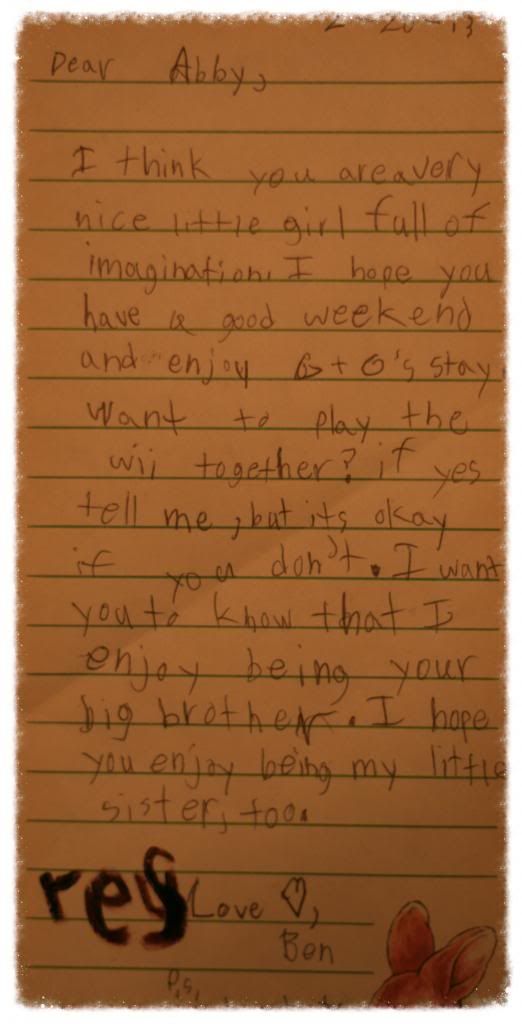 2-20-13
Dear Abby,
I think you are a very
nice little girl full of
imagination. I hope you
have a good weekend
and enjoy G + O's stay.
Want to play the
wii together? if yes
tell me, but its okay
if you don't. I want
you to know that I
enjoy being your
big brother. I hope
you enjoy being my little
sister, too.
Love ♡,
Ben
P.s.